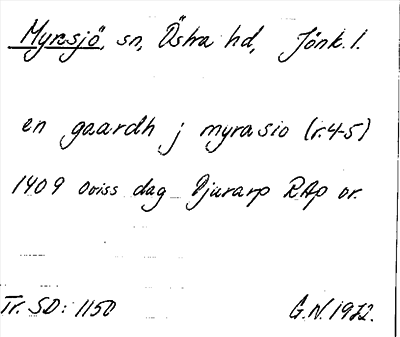 Myresjö, sn, Östra hd, Jönk. l.
en gaardh j myrasio (r. 4-5)
1409 Oviss dag Djurarp RAp or.
Tr. SD: 1150 G.N. 1972.